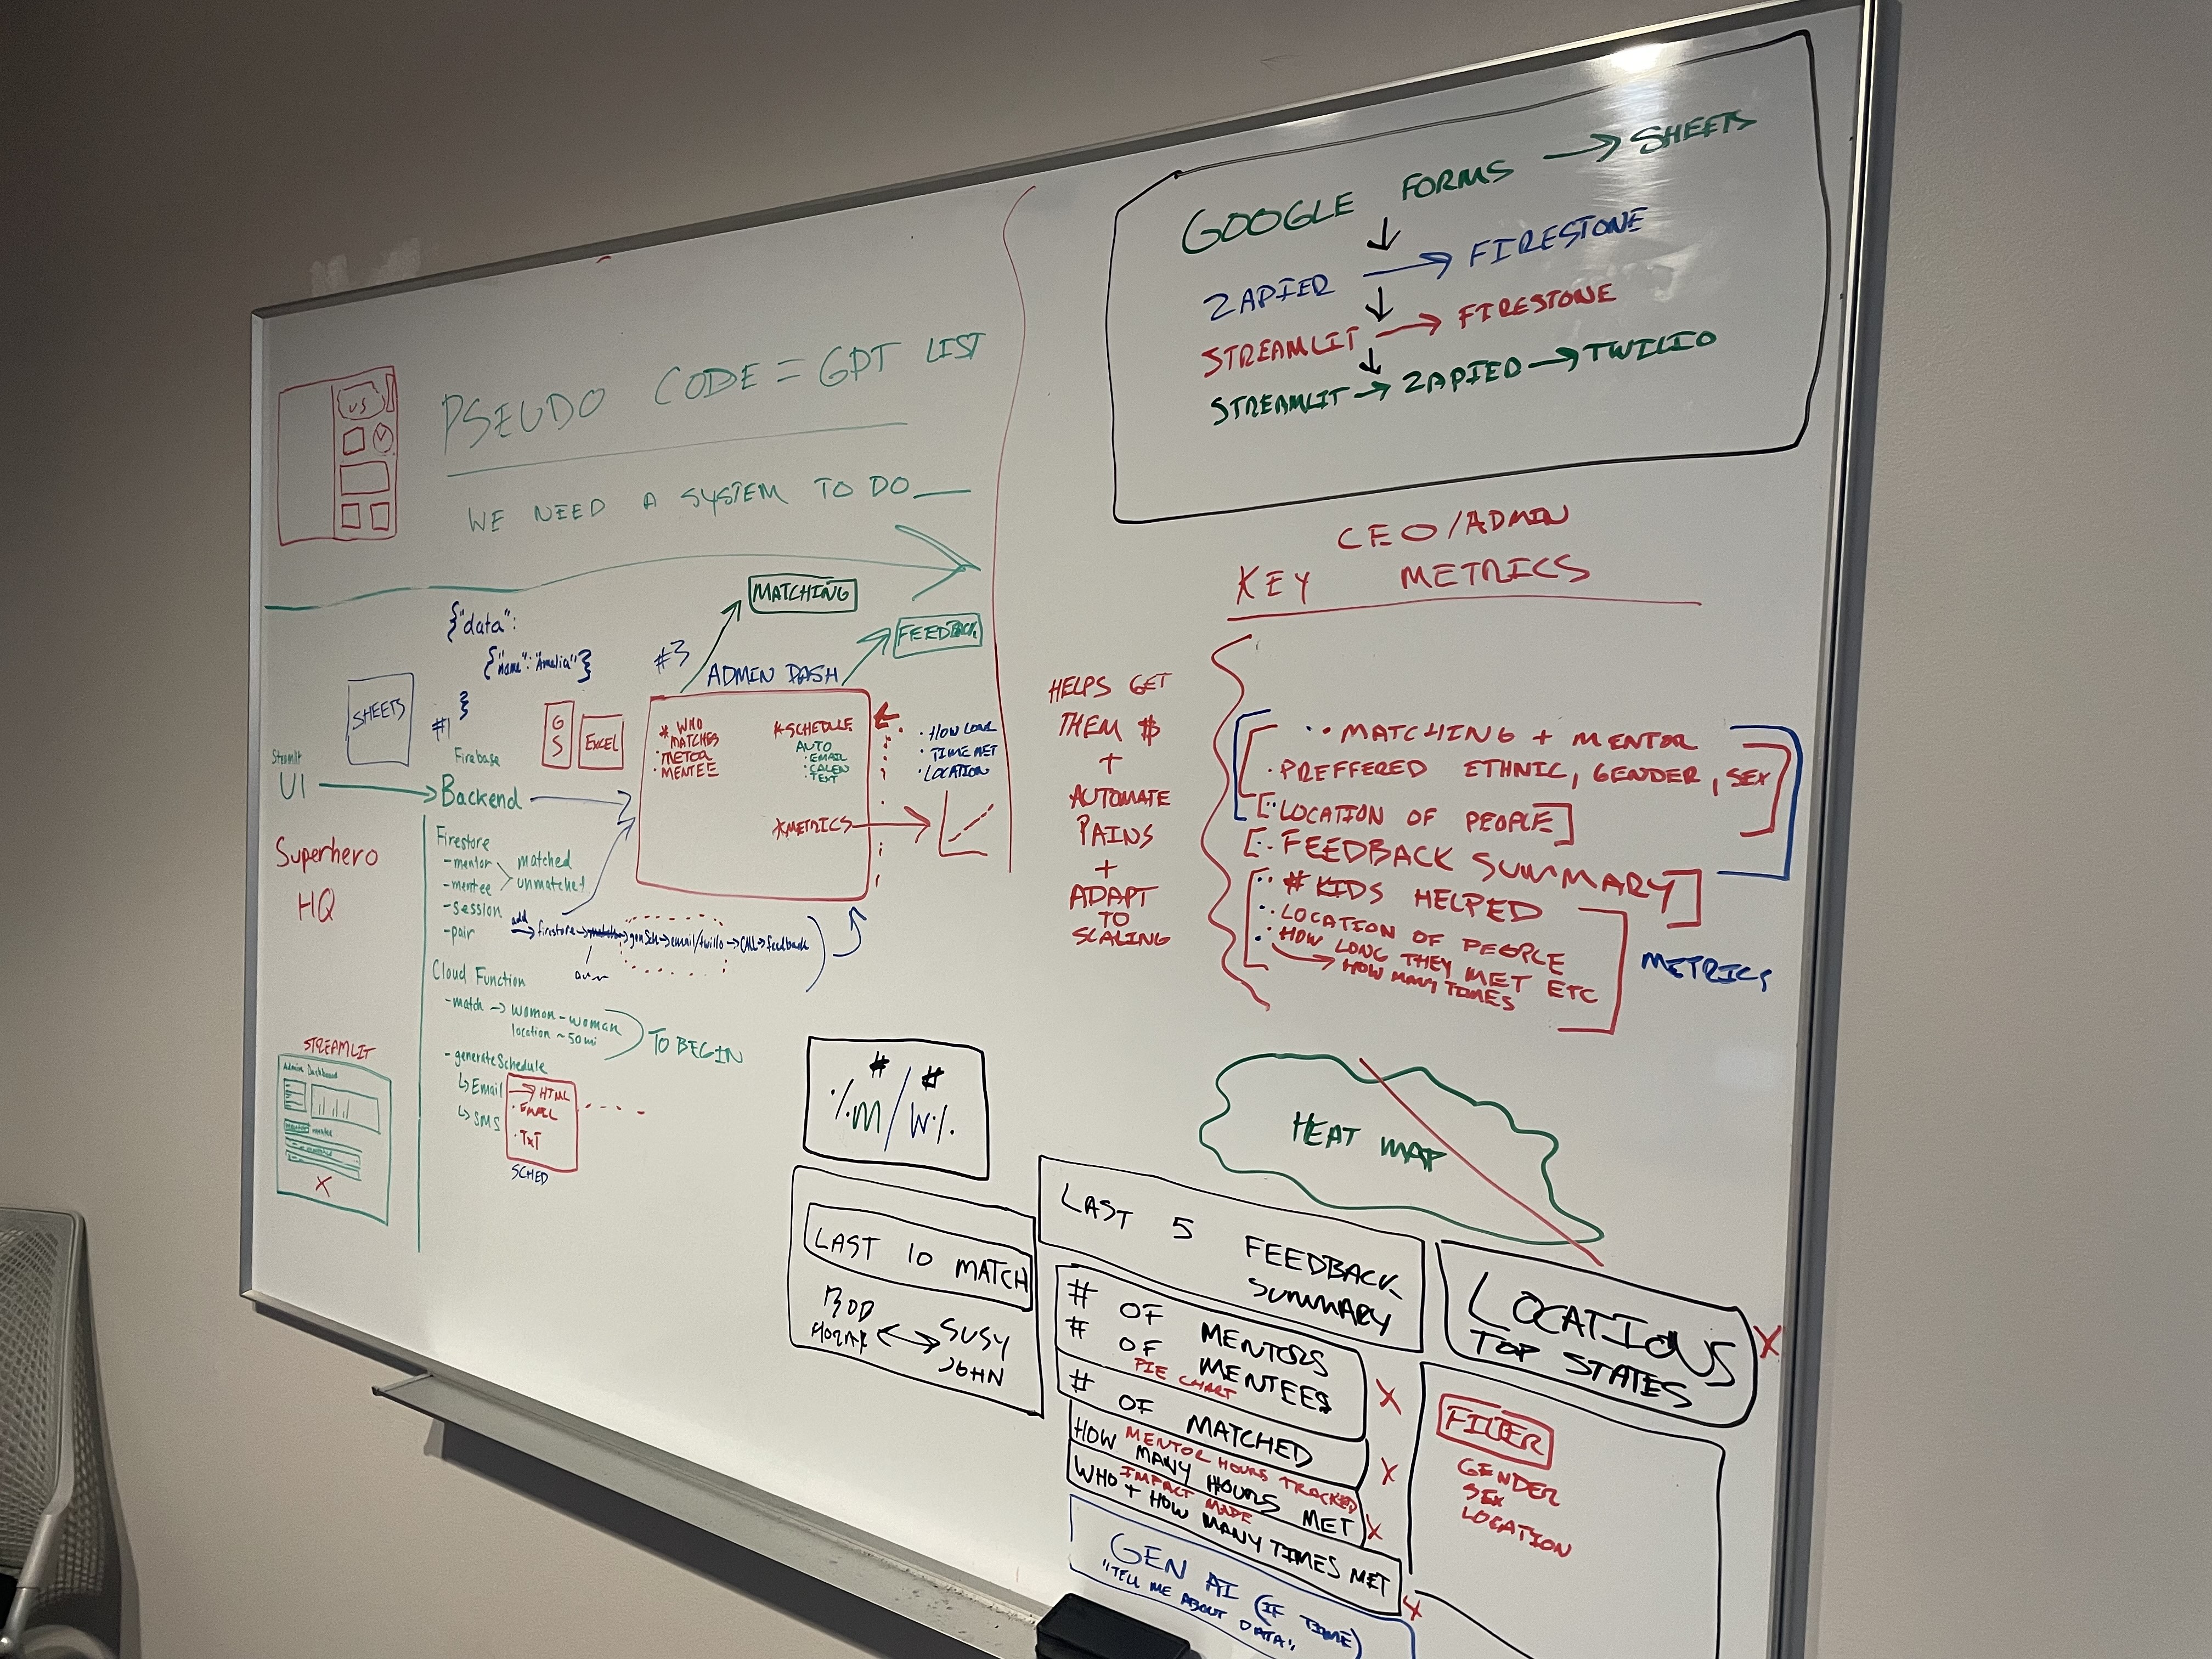 US
PSEUDO CODE = GPT LIST
WE NEED A SYSTEM TO DO __
{"data":
{"name":"Amelia"}
}
SHEETS
#1
GS
EXCEL
#3
MATCHING
FEEDBACK
ADMIN DASH
* WHO
MATCHES
· METOR
· MENTEE
* SCHEDLE
AUTO
· EMAIL
· CALEN
TEXT
* METRICS
· HOW LONG
· TIME MET
· LOCATION
Firebase
UI → Backend
Superhero
HQ
Firestore
- mentor
- mentee
matched
unmatched
- session
- pair
add
→ firestore → → gensch → email/twilio → CAL → feedback
Cloud Function
- match → woman - woman
location ~ 50mi
TO BEGIN
- generateSchedule
↳ Email → HTML
· EMAIL
↳ SMS
· TXT
SCHED
STREAMLIT
Admin Dashboard
X
GOOGLE FORMS → SHEETS
↓
ZAPIER → FIRESTONE
↓
STREAMLIT → FIRESTONE
↓
STREAMLIT → ZAPIED → TWILIO
CEO/ADMIN
KEY METRICS
HELPS GET
THEM $
+
AUTOMATE
PAINS
+
ADAPT
TO
SCALING
· MATCHING + MENTOR
· PREFFERED ETHNIC, GENDER, SEX
[· LOCATION OF PEOPLE]
[· FEEDBACK SUMMARY]
· # KIDS HELPED
· LOCATION OF PEOPLE
· HOW LONG THEY MET ETC
→ HOW MANY TIMES
METRICS
# / #
%M / W%
HEAT MAP
LAST 10 MATCH
↔ SUSY
JOHN
LAST 5 FEEDBACK
SUMMARY
# OF MENTORS
# OF MENTEES
PIE CHART
X
# OF MATCHED
X
MENTOR HOURS TRACKED
HOW MANY HOURS MET
X
IMPACT MADE
WHO + HOW MANY TIMES MET
X
GEN AI (IF TIME)
"TELL ME ABOUT DATA"
LOCATIONS
TOP STATES
X
FILTER
GENDER
SEX
LOCATION